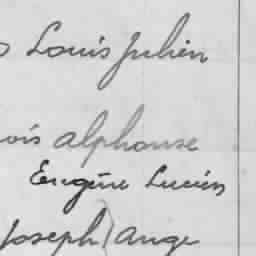 Louis Julien
ois alphonse
Eugène Lucien
Joseph) ange